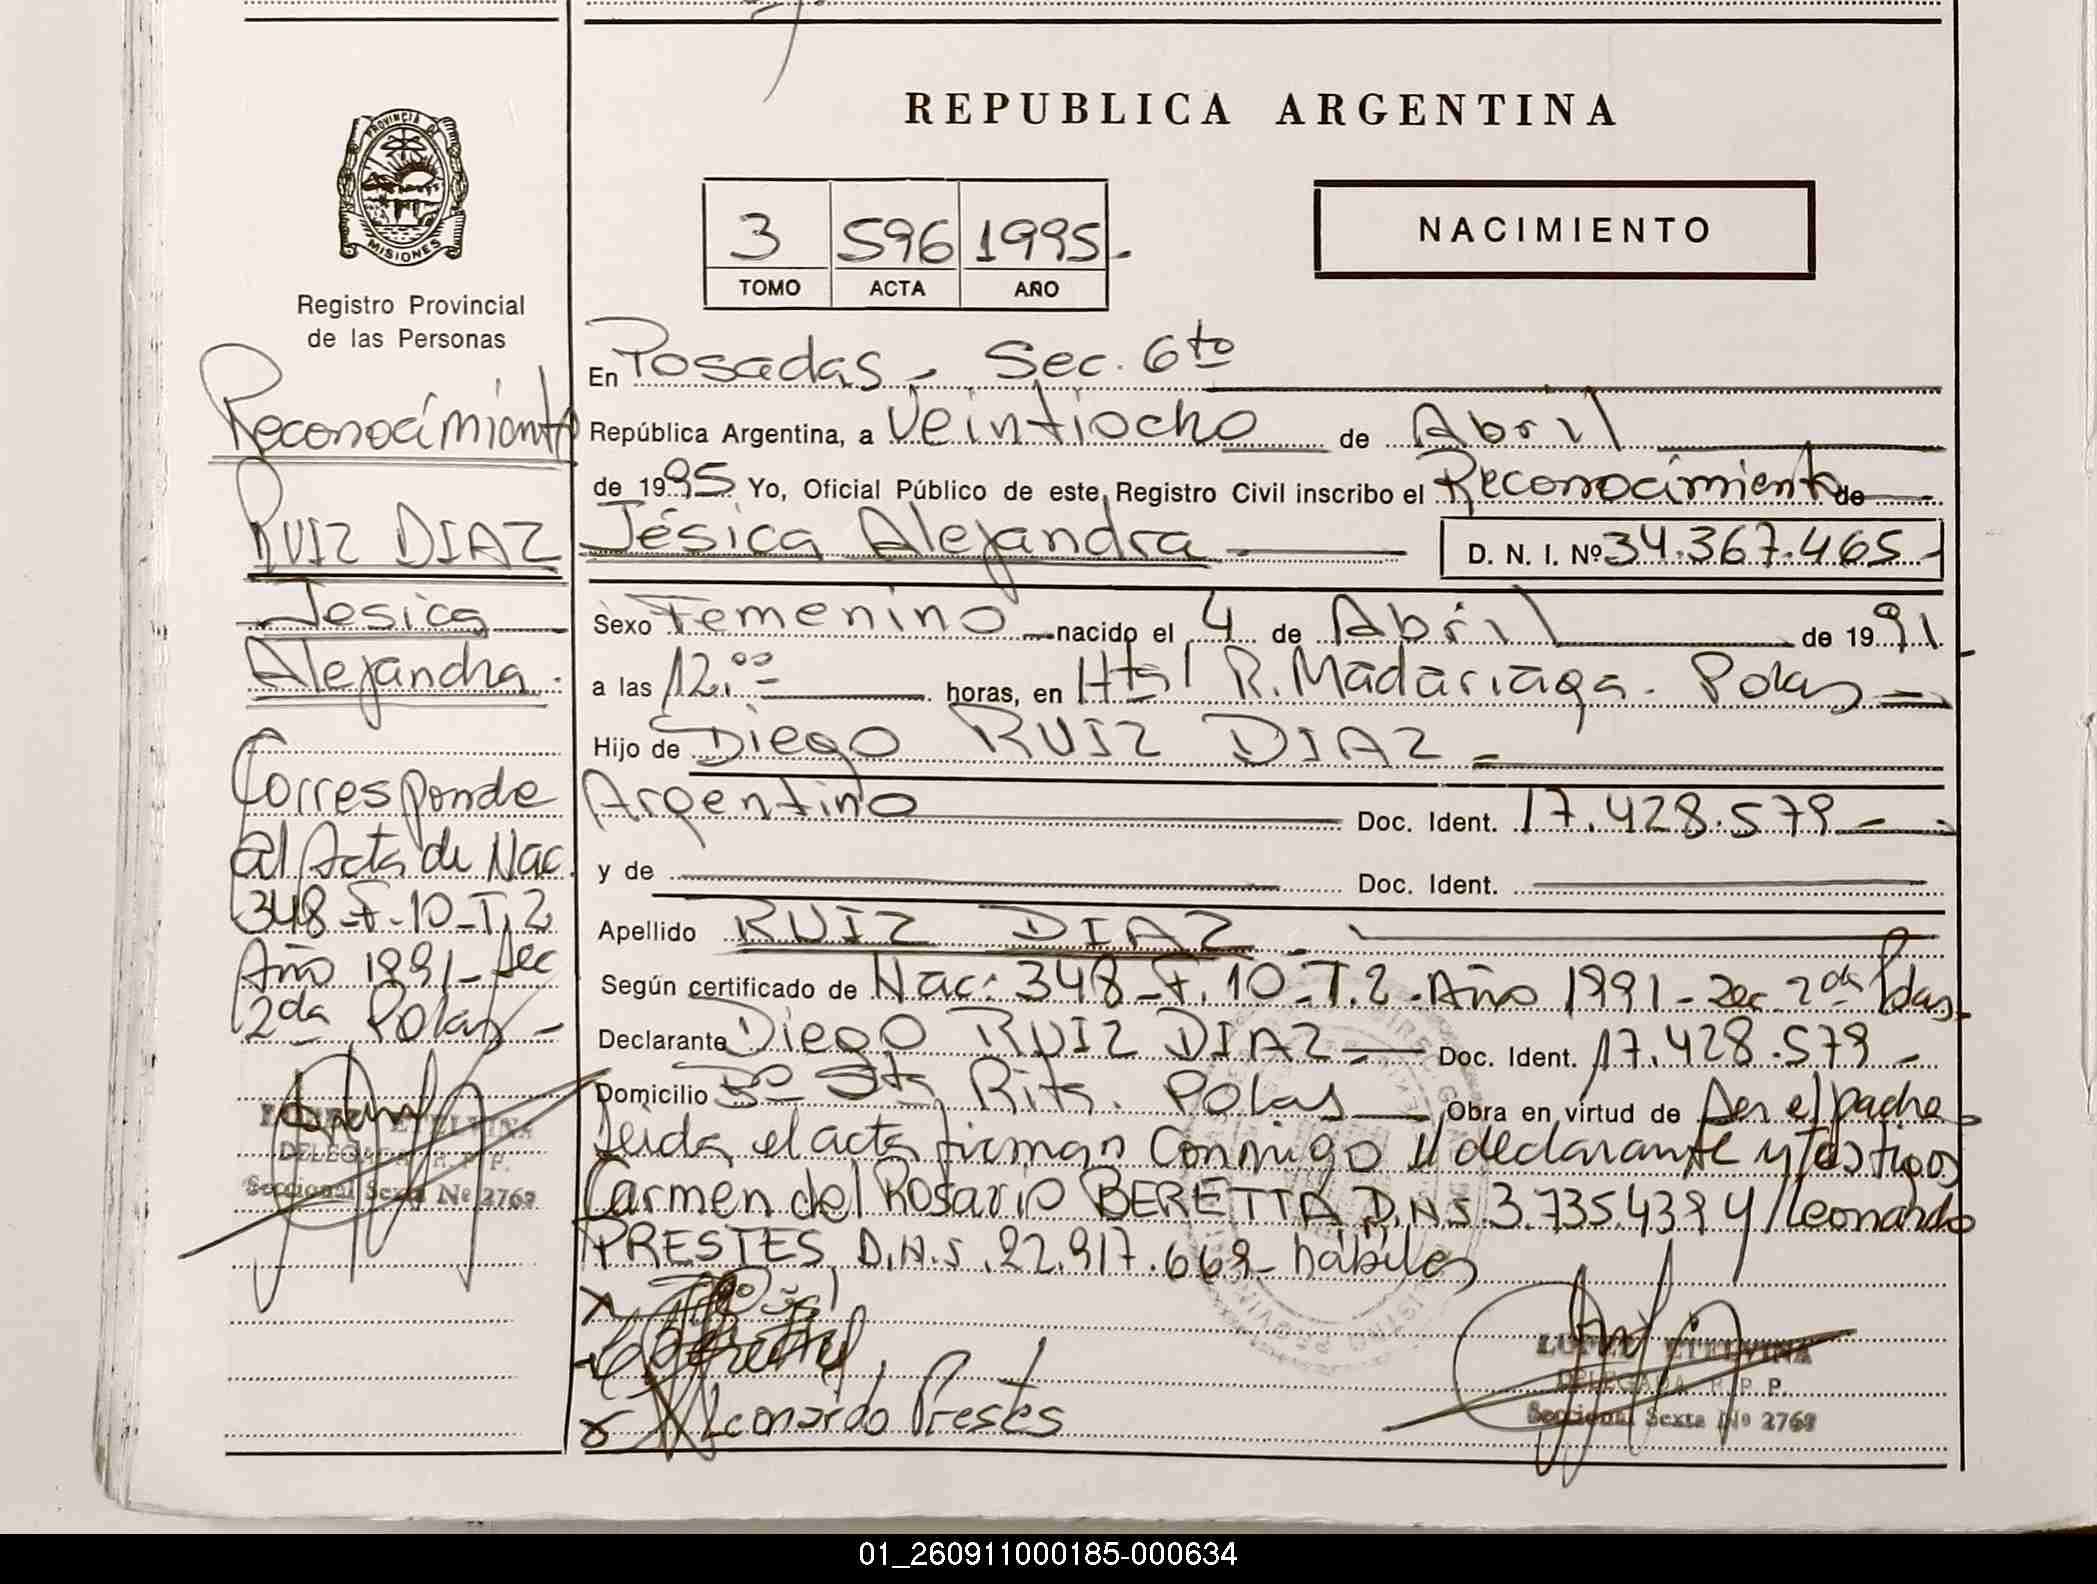 REPUBLICA ARGENTINA
PROVINCIA D
MISIONES
3 596 1995.-
TOMO ACTA AÑO
NACIMIENTO
Registro Provincial
de las Personas
Reconocimiento
RUIZ DIAZ
Jesica
Alejandra.
Corresponde
al Acta de Nac.
348-F-10-T.2
Año 1991-Sec
2da Pdas -
LOPEZ ETELVINA
DELEGADA R. P. P.
Seccional Sexta Nº 2769
En Posadas - Sec. 6to
República Argentina, a Veintiocho de Abril
de 1995 Yo, Oficial Público de este Registro Civil inscribo el Reconocimiento de
Jésica Alejandra D. N. I. Nº 34.367.465-
Sexo Femenino nacido el 4 de Abril de 1991
a las 12:00 horas, en Htal R. Madariaga. Pdas
Hijo de Diego RUIZ DIAZ
Argentino Doc. Ident. 17.428.579
y de Doc. Ident.
Apellido RUIZ DIAZ
Según certificado de Nac: 348-F.10-T.2-Año 1991-Sec 2da Pdas.
Declarante Diego RUIZ DIAZ Doc. Ident. 17.428.579-
Domicilio Bº Sta Rita. Pdas Obra en virtud de Ser el padre
Leida el acta firman conmigo el declarante y testigos
Carmen del Rosario BERETTA D.N.I. 3.735.439 y Leonardo
PRESTES D.N.I. 22.917.669- hábiles
Leonardo Prestes
LOPEZ ETELVINA
DELEGADA R. P. P.
Seccional Sexta Nº 2769
01_260911000185-000634